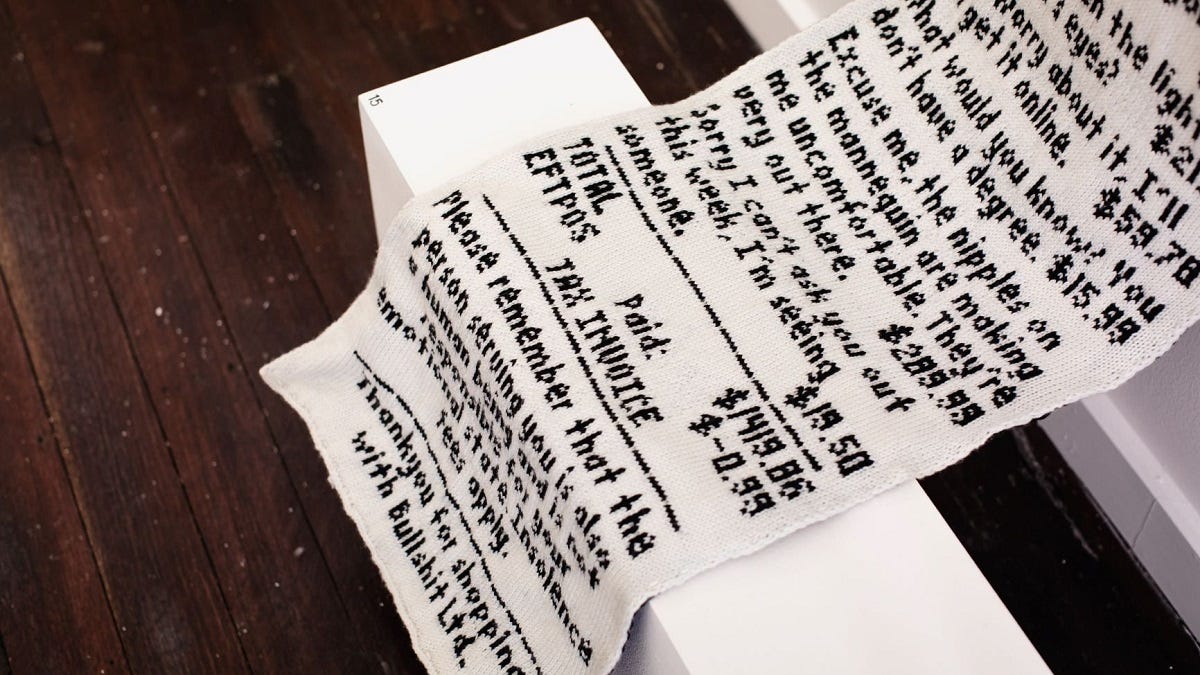 the light
eyes
worry about it, I'll
get it online. $59.78
What would you know, you
don't have a degree. $15.99
Excuse me, the nipples on
the mannequin are making
me uncomfortable. They're
very out there. $289.99
Sorry I can't ask you out
this week, I'm seeing
someone. $19.50
TOTAL $1419.86
EFTPOS $-0.99
Paid:
TAX INVOICE
Please remember that the
person serving you is also
a human being and is not
your
Insolence
fees apply.
Thankyou for shopping
with Bullshit Ltd.
15